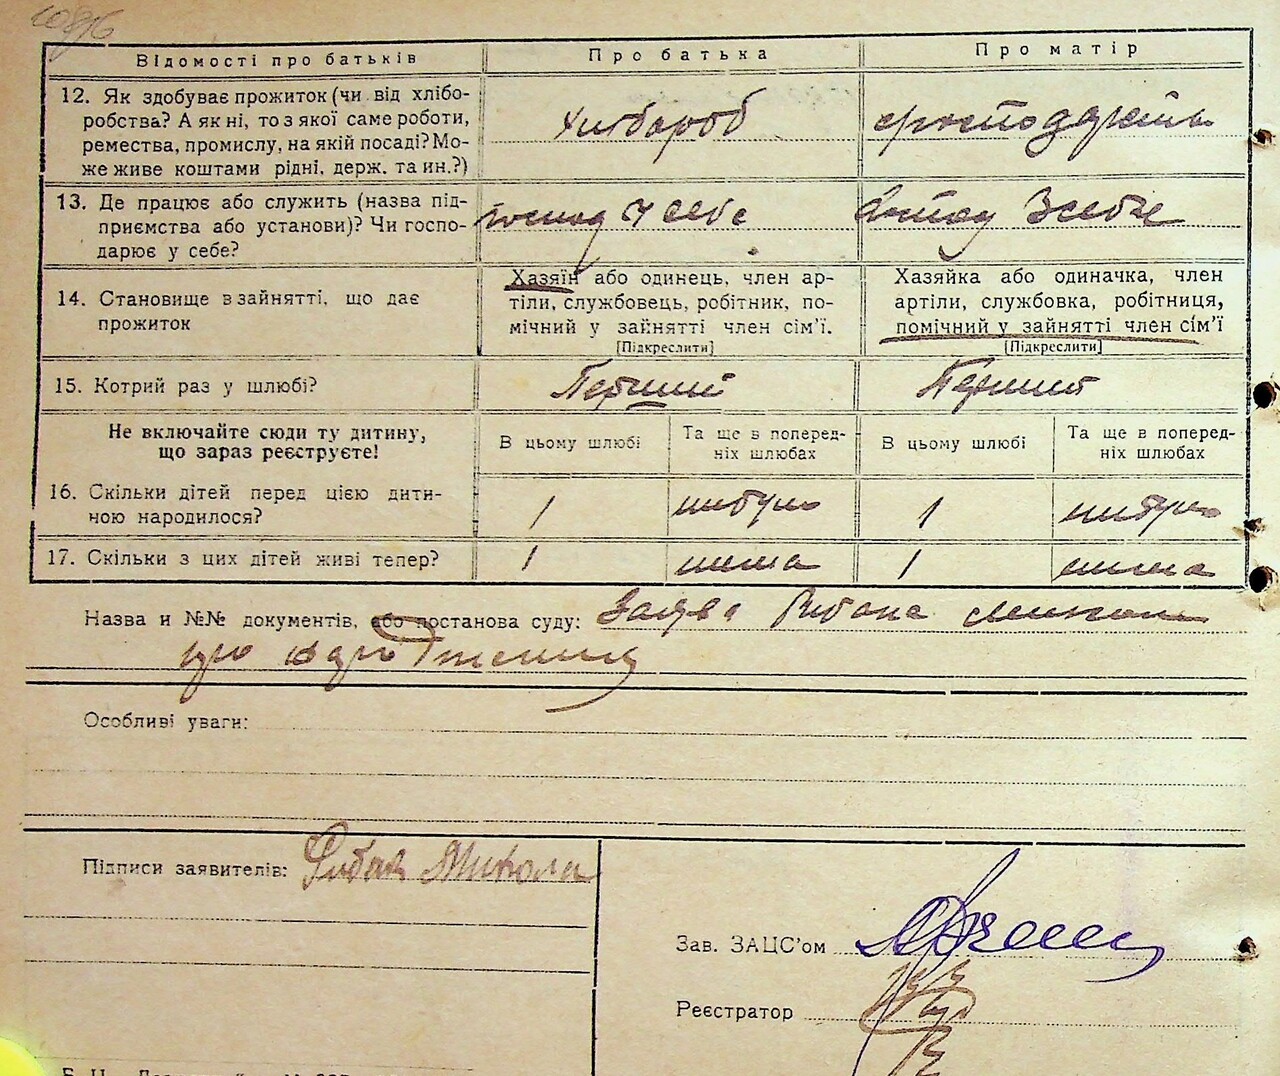 10876
Відомості про батьків
Про батька
Про матір
12. Як здобуває прожиток (чи від хлібо-
робства? А як ні, то з якої саме роботи,
ремества, промислу, на якій посаді? Мо-
же живе коштами рідні, держ. та ин.?)
Хлібороб
13. Де працює або служить (назва під-
приємства або установи)? Чи госпо-
дарює у себе?
господ у себе
господ в себе
14. Становище в зайнятті, що дає
прожиток
Хазяїн або одинець, член ар-
тіли, службовець, робітник, по-
мічний у зайнятті член сім'ї.
[Підкреслити]
Хазяйка або одиначка, член
артіли, службовка, робітниця,
помічний у зайнятті член сім'ї
[Підкреслити]
15. Котрий раз у шлюбі?
Перший
Перший
Не включайте сюди ту дитину,
що зараз реєструєте!
В цьому шлюбі
Та ще в поперед-
ніх шлюбах
В цьому шлюбі
Та ще в поперед-
ніх шлюбах
16. Скільки дітей перед цією дити-
ною народилося?
1
небуло
1
небуло
17. Скільки з цих дітей живі тепер?
1
нема
1
нема
Назва и №№ документів, або постанова суду: Заява Рибака Миколи
про народження
Особливі уваги:
Підписи заявителів: Рибак Микола
Зав. ЗАЦС'ом
Реєстратор